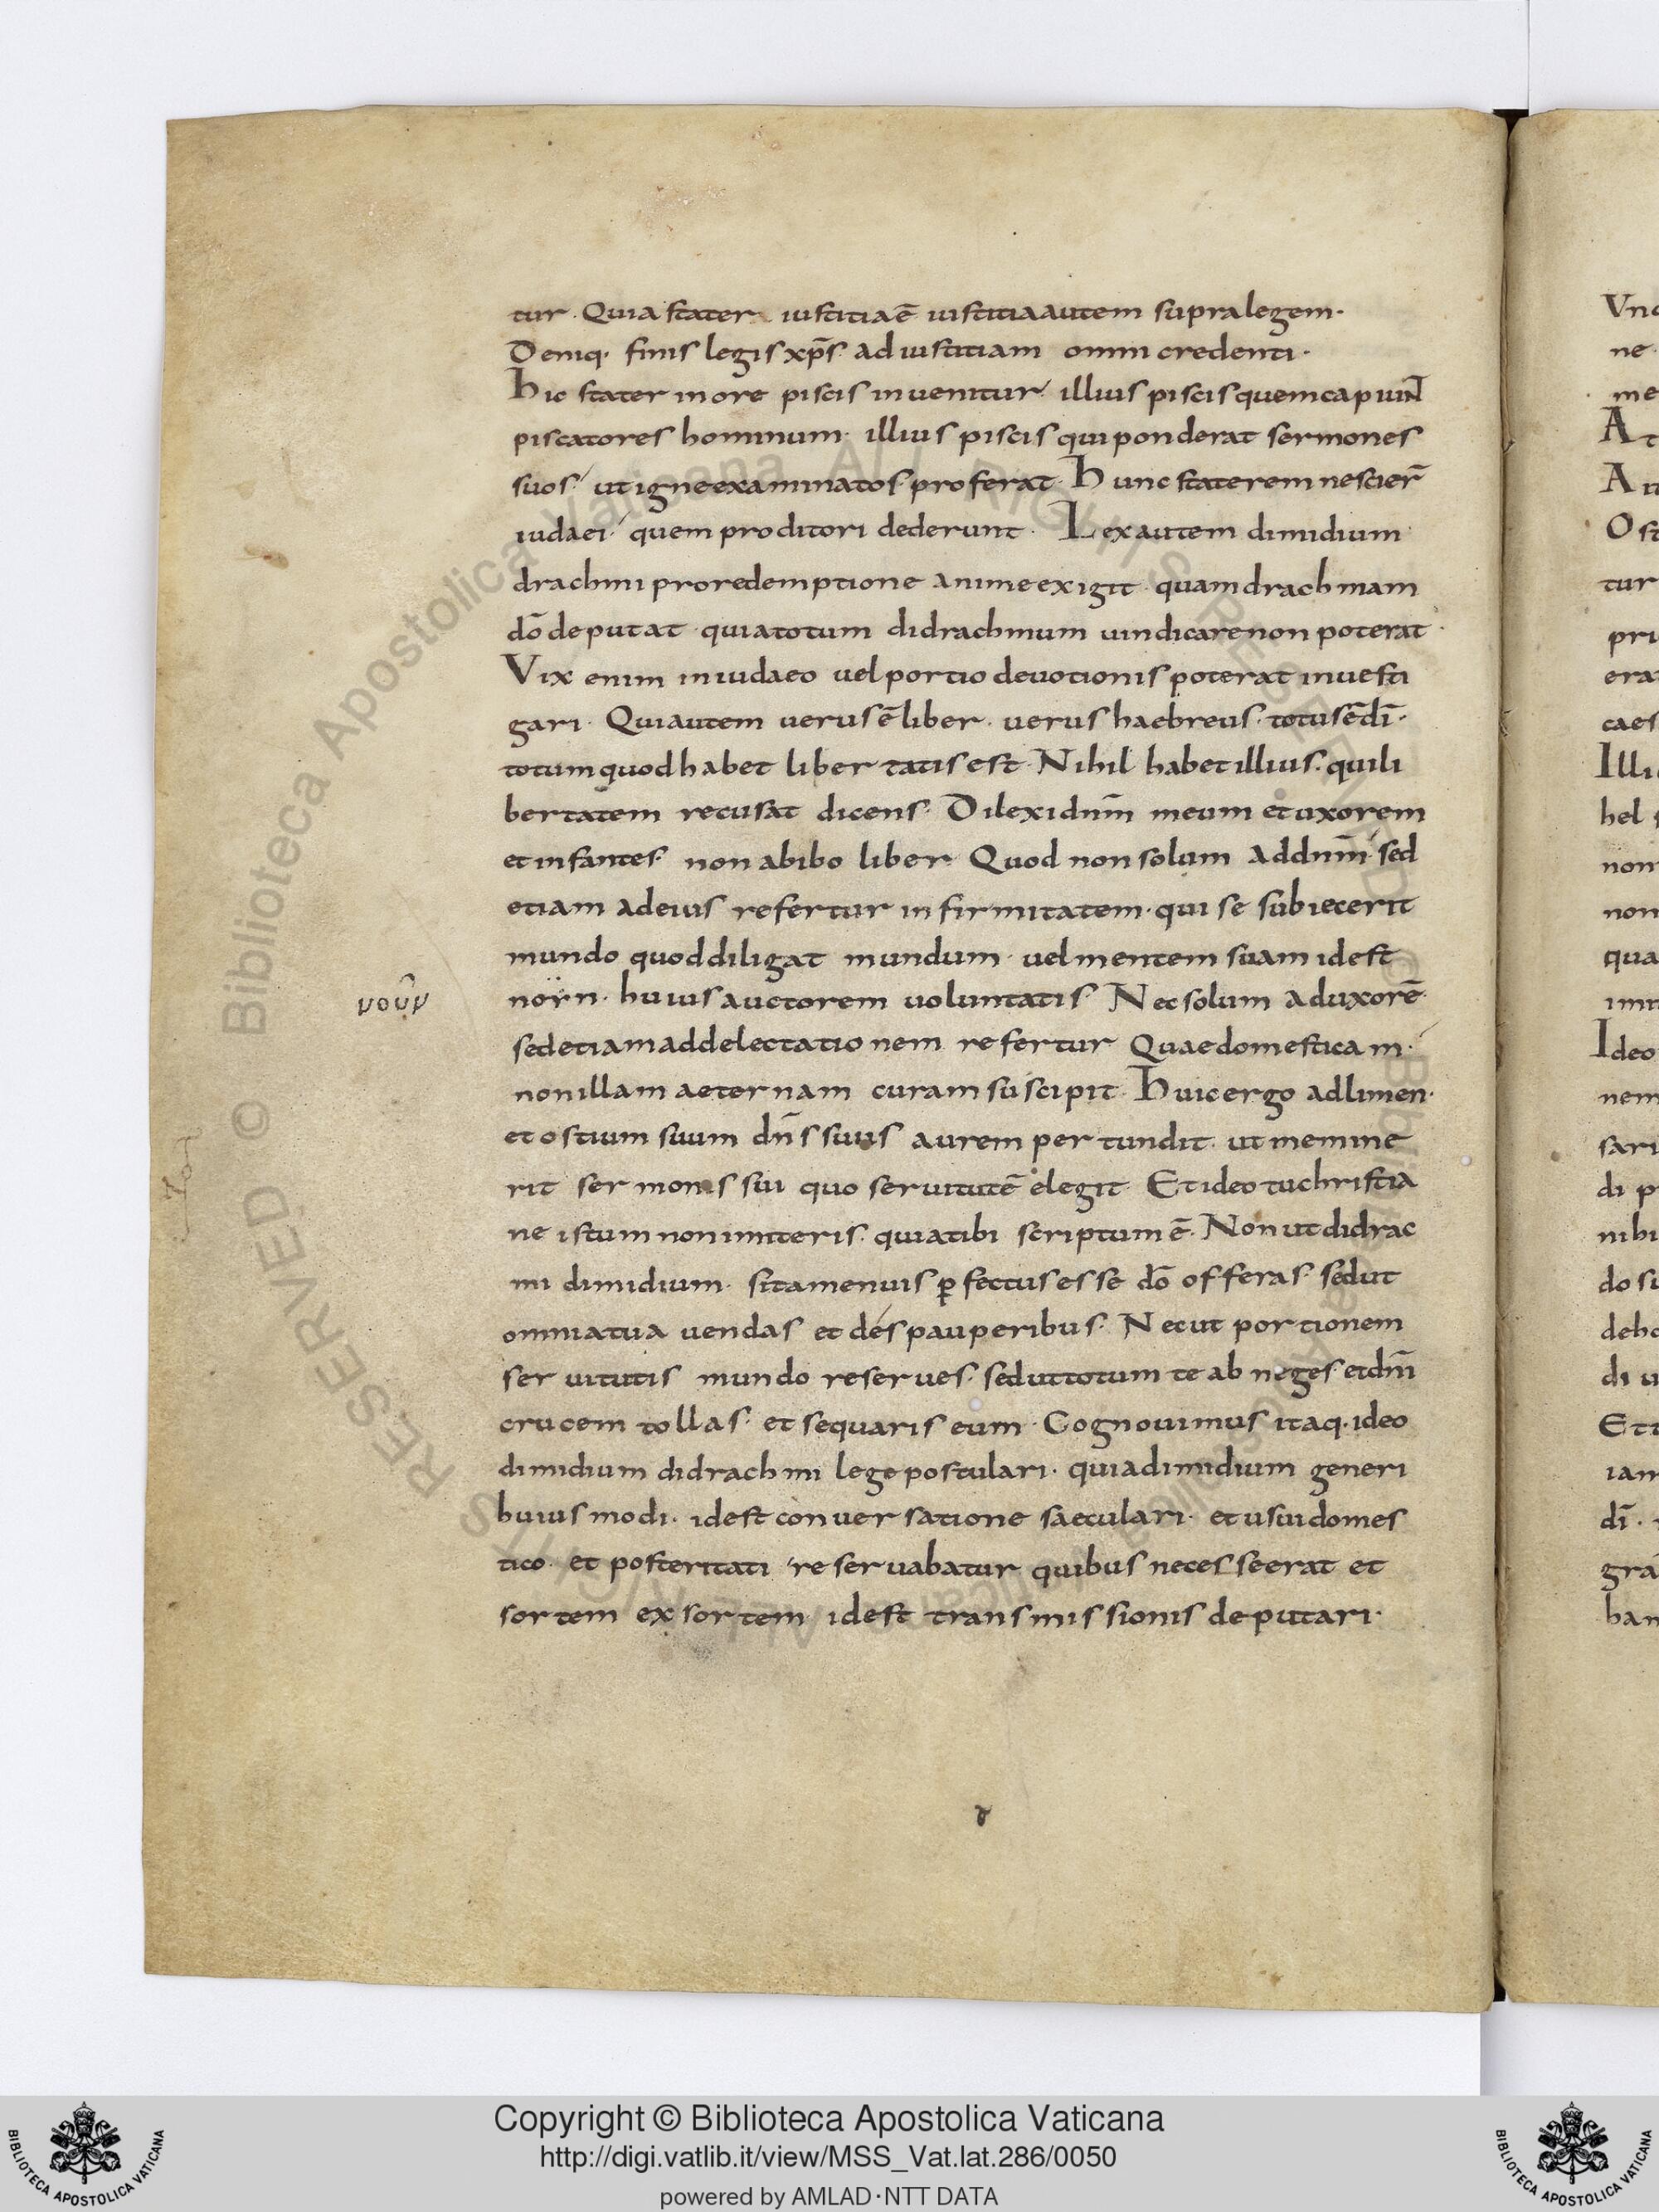 tur. Quia stater iustitia ē iustitia autem supra legem.
Deniq. finis legis xp̄s. ad iustitiam omni credenti.
Hic stater in ore piscis invenitur. illius piscis quem capiunt
piscatores hominum. illius piscis qui ponderat sermones
suos. ut igne examinatos proferat. Hunc staterem nescier̄
iudaei. quem proditori dederunt. Lex autem dimidium
drachmi pro redemptione anime exigit. quam drachmam
dō deputat. quia totum didrachmum uindicare non poterat.
Vix enim in iudaeo uel portio deuotionis poterat inuesti
gari. Qui autem uerus ē liber. uerus haebreus. totus ē dī.
totum quod habet libertatis est. Nihil habet illius. qui li
bertatem recusat dicens. Dilexi dnm̄ meum et uxorem
et infantes. non abibo liber. Quod non solum ad dnm̄. sed
etiam ad eius refertur infirmitatem. qui se subiecerit
mundo quod diligat mundum. uel mentem suam id est
νοῦν
noyn. huius auctorem uoluntatis. Nec solum ad uxorē
sed etiam ad delectationem refertur Quae domesticam.
non illam aeternam curam suscipit. Huic ergo ad limen.
et ostium suum dn̄s suus aurem pertundit. ut memine
rit sermonis sui quo seruitutē elegit. Et ideo tu christia
ne istum non imiteris. quia tibi scriptum ē. Non ut didrac
mi dimidium. si tamen uis p̱fectus esse dō offeras. sed ut
omnia tua uendas et dés pauperibus. Nec ut portionem
seruitutis mundo reserues. sed ut totum te abneges. et dnī
crucem tollas. et sequaris eum. Cognouimus itaq. ideo
dimidium didrachmi lege postulari. quia dimidium generi
huius modi. id est conuersatione saeculari. et usui domes
tico. et posteritati reseruabatur quibus necesse erat et
sortem ex sortem id est transmissionis deputari.
Copyright © Biblioteca Apostolica Vaticana
http://digi.vatlib.it/view/MSS_Vat.lat.286/0050
powered by AMLAD·NTT DATA
BIBLIOTECA APOSTOLICA VATICANA
BIBLIOTECA APOSTOLICA VATICANA